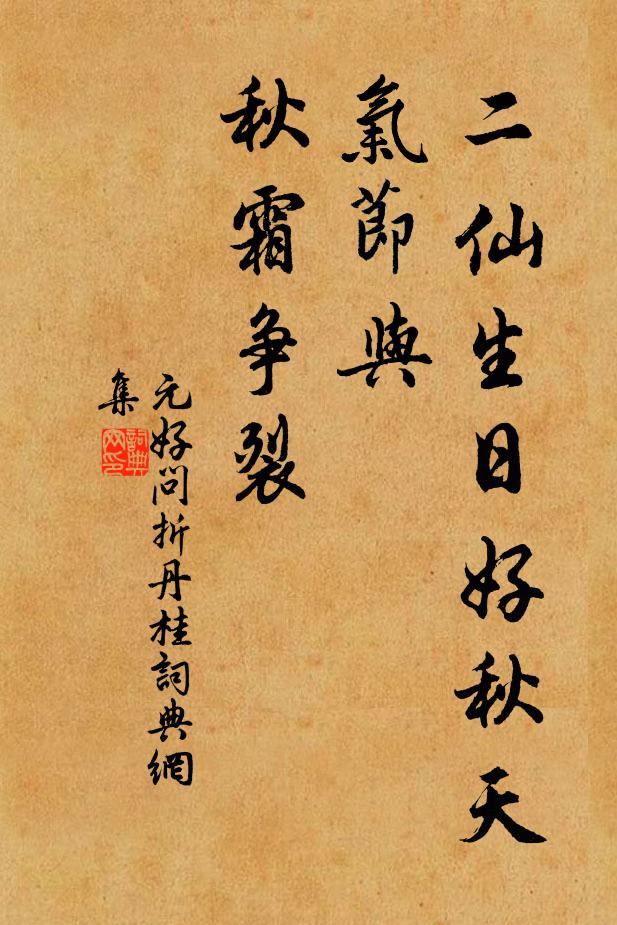 二仙生日好秋天
氣節與
秋霜争裂
元好問折丹桂詞典網
集
詞典網印